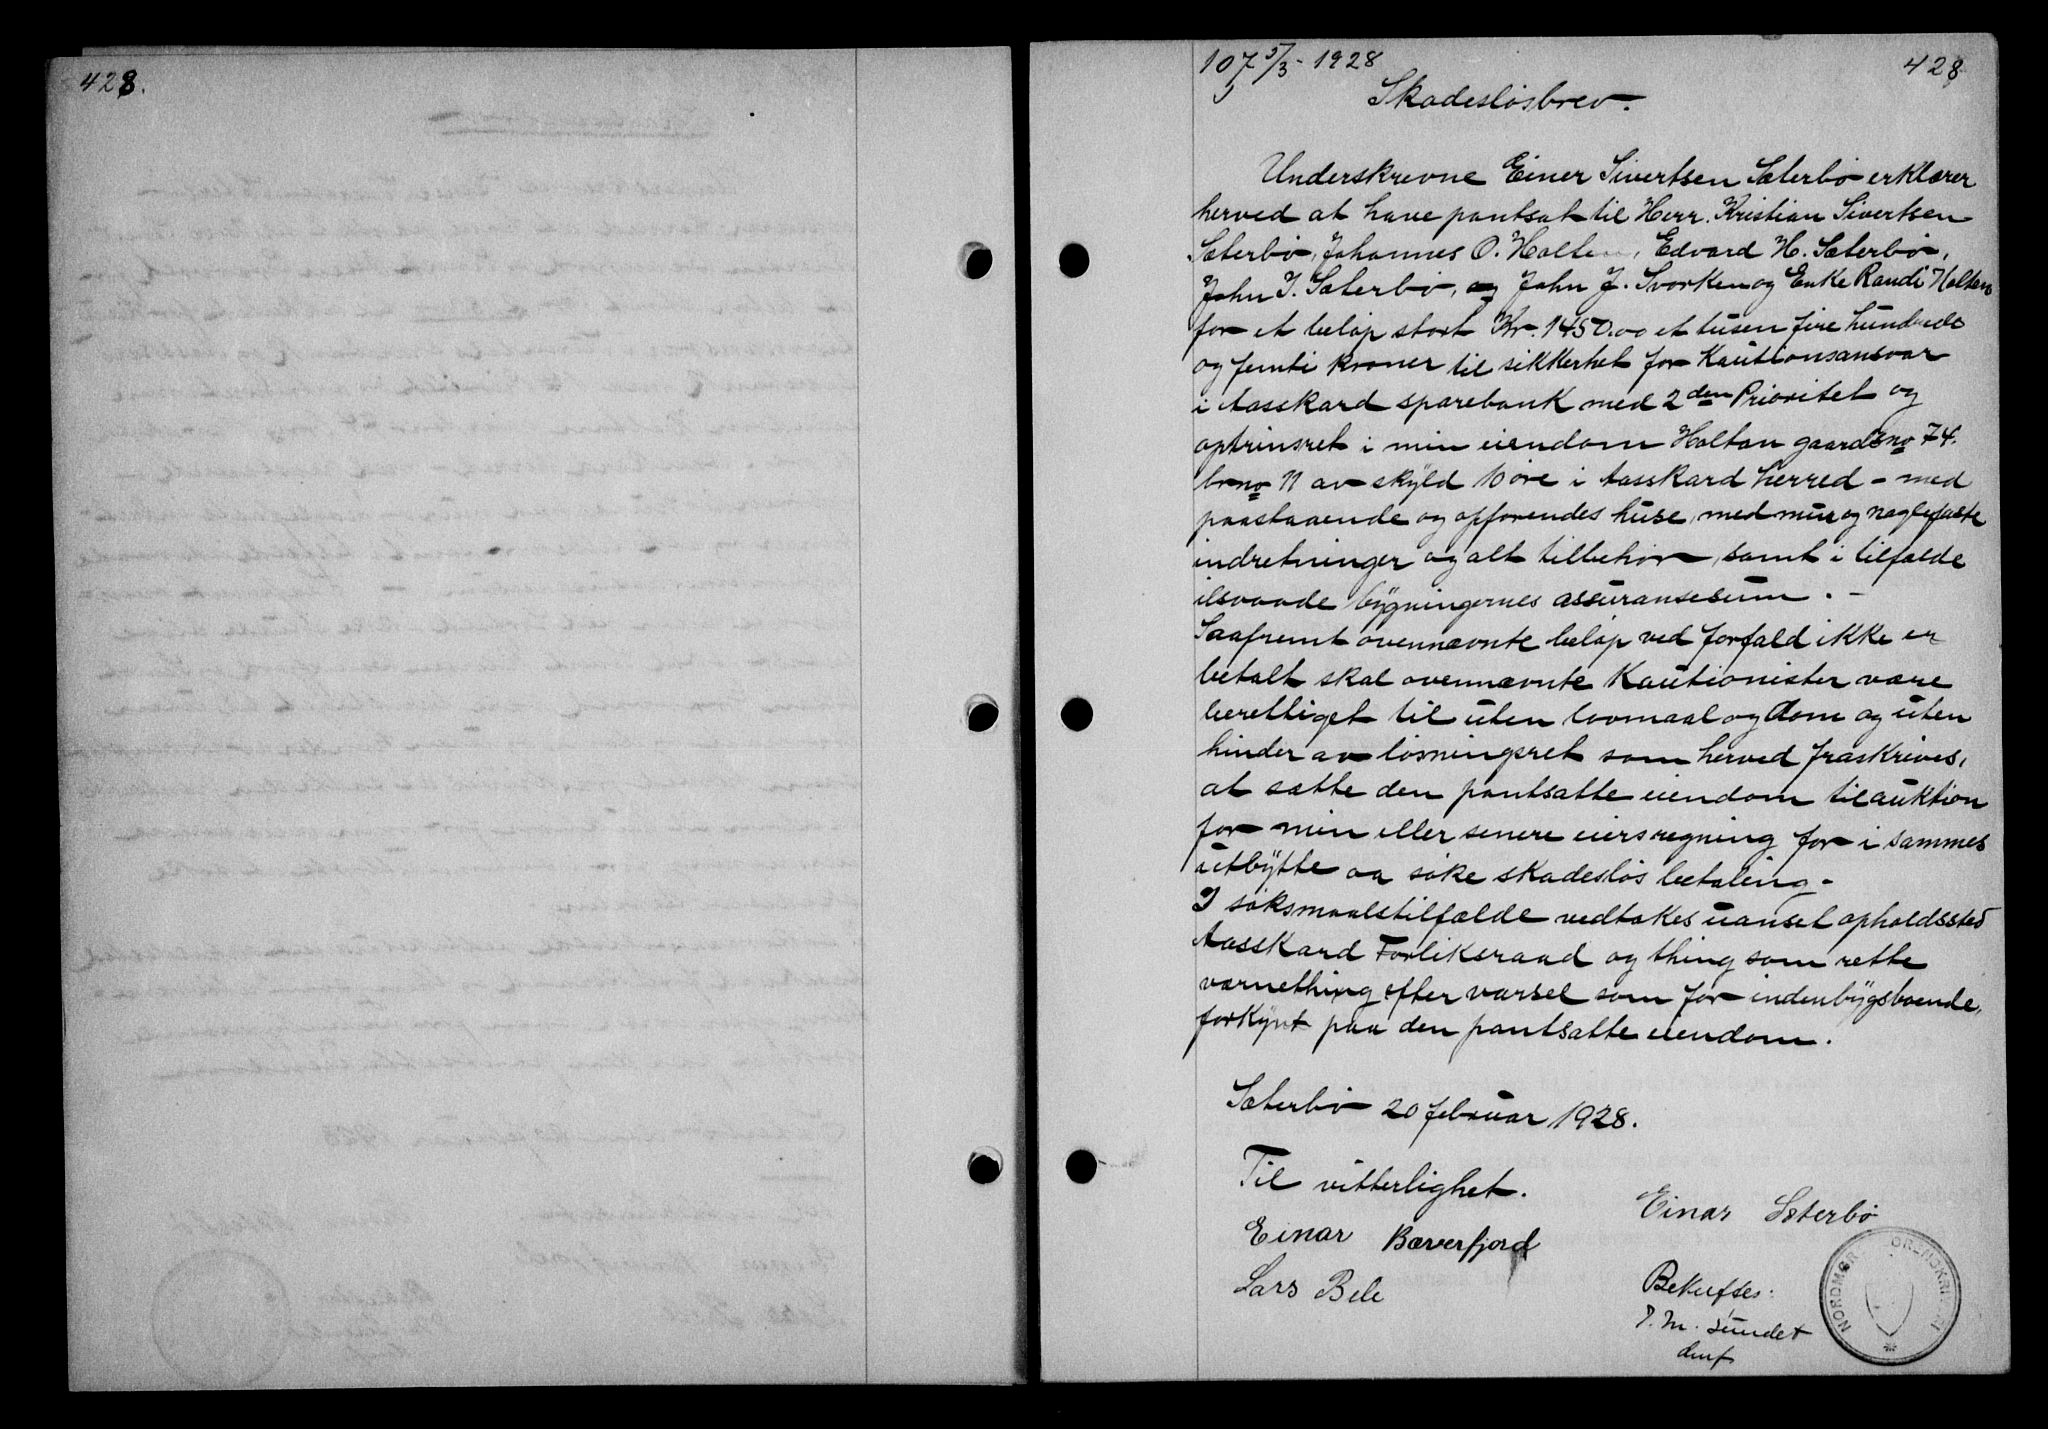 428.
107 5/3 - 1928
428
Skadesløsbrev.
Underskrevne Einer Sivertsen Sæterbø erklærer
herved at have pantsat til Herr. Kristian Sivertsen
Sæterbø, Johannes O. Holten, Edvard H. Sæterbø,
John I. Sæterbø, og John J. Svorken og Enke Randi Holten
for et beløp stort Kr. 1450.00 et tusen fire hundrede
og femti kroner til sikkerhet for Kautionsansvar
i Aasskard sparebank med 2den Prioritet og
optrinsret i min eiendom Holtan gaardsno 74.
brno 11 av skyld 10 øre i Aasskard herred - med
paastaaende og opførendes huse, med mur og naglefaste
indretninger og alt tilbehør, samt i tilfælde
ilsvaade bygningernes assuransesum. -
Saafremt ovennævnte beløp ved forfald ikke er
betalt skal ovennævnte Kautionister være
berettiget til uten lovmaal og dom og uten
hinder av løsningsret som herved fraskrives,
at sætte den pantsatte eiendom til auktion
for min eller senere eiers regning for i sammes
utbytte aa søke skadesløs betaling -
I søksmaalstilfælde vedtakes uanset opholdssted
Aasskard Forliksraad og thing som rette
værnething efter varsel som for indenbygsboende,
forkynt paa den pantsatte eiendom.
Sæterbø 20 februar 1928.
Til vitterlighet.
Einar Sæterbø
Einar Bæverfjord
Lars Bele
Bekræftes:
J. M. Sundet
NORDMØR SORENSKRIVERI